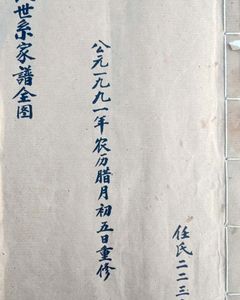 任氏二二三
公元一九九一年农历腊月初五日重修
世系家谱全图